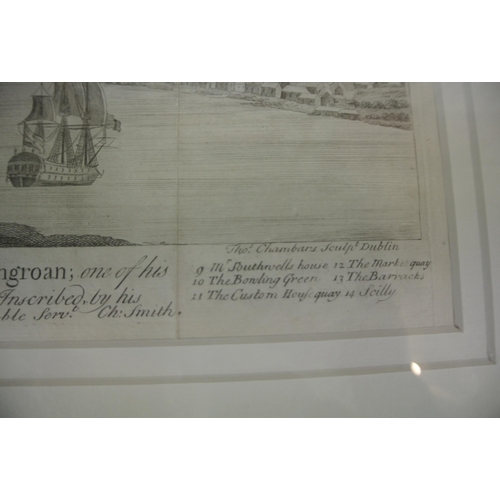 Tho.s Chambars Sculp.t Dublin
ngroan; one of his
Inscribed by his
ble Serv.t Ch: Smith.
9 M.r Southwells house 12 The Market quay
10 The Bowling Green 13 The Barracks
11 The Custom House quay 14 Scilly